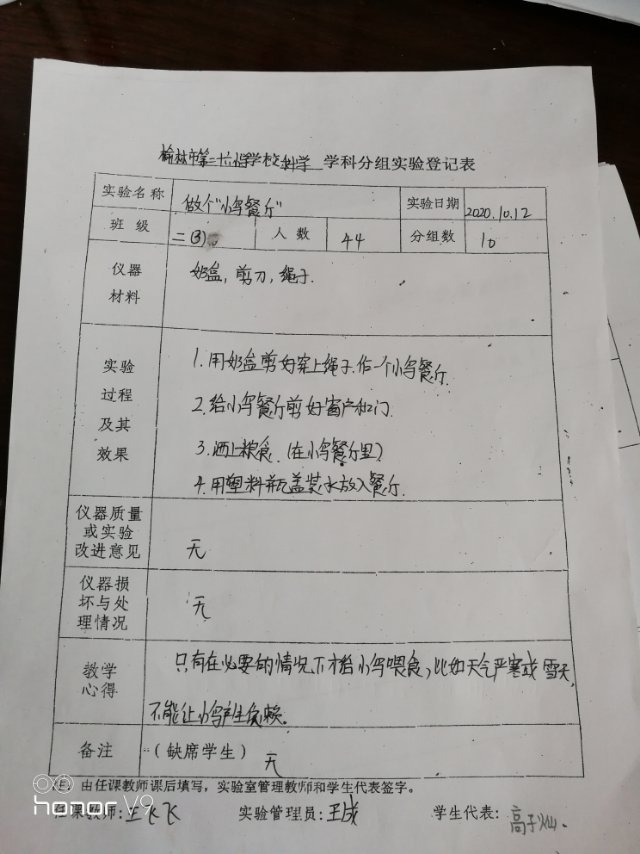 榆林市第三十六小学学校科学 学科分组实验登记表
实验名称 做个“小鸟餐厅” 实验日期 2020.10.12
班级 二(3) 人数 44 分组数 10
仪器材料 奶盒,剪刀,绳子.
实验过程及其效果
1.用奶盒剪好穿上绳子.作一个小鸟餐厅.
2.给小鸟餐厅剪好窗户和门.
3.洒上粮食.(在小鸟餐厅里)
4.用塑料瓶盖装水放入餐厅.
仪器质量或实验改进意见 无
仪器损坏与处理情况 无
教学心得 只有在必要的情况下才给小鸟喂食,比如天气严寒或雪天,
不能让小鸟产生依赖。
备注 (缺席学生) 无
由任课教师课后填写,实验室管理教师和学生代表签字。
任课教师: 飞飞 实验管理员: 王成 学生代表: 高子
honor V9